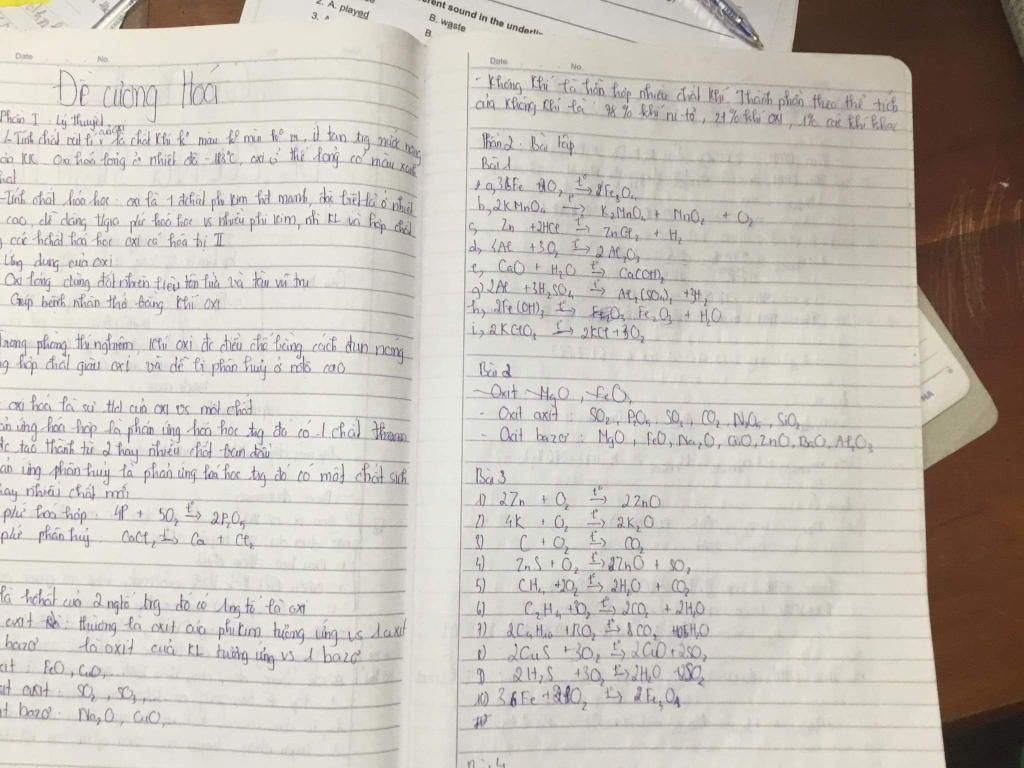 2. A. played
B. waste
erent sound in the underlin
3. A
B
Date
No.
Đề cương Hoá
Phần I : Lý thuyết
của oxi
1. Tính chất vật lí : là chất khí ko màu ko mùi ko vị, ít tan trg nước, nặng
KK. Oxi hoá lỏng ở nhiệt độ -183°C, oxi ở thể lỏng có màu xanh
nhạt
- Tính chất hóa học : oxi là 1 đchất phi kim hđ mạnh, đặc biệt là ở nhiệt
cao, dễ dàng tgia pứ hoá học vs nhiều phi kim, nhi KL và hợp chất
các hchất hoá học oxi có hoá trị II
Ứng dụng của oxi
Oxi lỏng dùng đốt nhiên liệu tên lửa và tàu vũ trụ
Giúp bệnh nhân thở bằng khí oxi
Trong phòng thí nghiệm, khí oxi đc điều chế bằng cách đun nóng
hợp chất giàu oxi và dễ bị phân huỷ ở nđộ cao
oxi hoá là sự td của oxi vs một chất
ứng hoá hợp là phản ứng hoá học trg đó có 1 chất
đc tạo thành từ 2 hay nhiều chất ban đầu
ứng phân huỷ là phản ứng hoá học trg đó có một chất sinh
hay nhiều chất mới
pứ hoá hợp : 4P + 5O₂ →t° 2P₂O₅
pứ phân huỷ : CaCl₂ →t° Ca + Cl₂
là hchất của 2 ngtố trg đó có 1 ngtố là oxi
axit : thường là oxit của phi kim tương ứng vs 1 axit
bazơ là oxit của KL tương ứng vs 1 bazơ
xit : FeO, CuO,...
it axit : SO₂, SO₃,...
it bazơ : Na₂O, CuO,
Date
No.
- Không khí là hỗn hợp nhiều chất khí. Thành phần theo thể tích
của không khí là : 78% khí ni-tơ, 21% khí oxi, 1% các khí khác
Phần 2 : Bài tập
Bài 1
a, 3Fe + 2O₂ →t° Fe₃O₄
b, 2KMnO₄ →t° K₂MnO₄ + MnO₂ + O₂
c, Zn + 2HCl →t° ZnCl₂ + H₂
d, 4Al + 3O₂ →t° 2Al₂O₃
e, CaO + H₂O →t° Ca(OH)₂
g, 2Al + 3H₂SO₄ →t° Al₂(SO₄)₃ + 3H₂
h, 2Fe(OH)₃ →t° Fe₂O₃ + H₂O
i, 2KClO₃ →t° 2KCl + 3O₂
Bài 2
- Oxit MgO, FeO,
- Oxit axit : SO₂, P₂O₅, SO₃, CO₂, N₂O₅, SiO₂
- Oxit bazơ : MgO, FeO, Na₂O, CuO, ZnO, BaO, Al₂O₃
Bài 3
1) 2Zn + O₂ →t° 2ZnO
2) 4K + O₂ →t° 2K₂O
3) C + O₂ →t° CO₂
4) ZnS + O₂ →t° 2ZnO + SO₂
5) CH₄ + 2O₂ →t° 2H₂O + CO₂
6) C₂H₄ + 3O₂ →t° 2CO₂ + 2H₂O
7) 2C₄H₁₀ + 13O₂ →t° 8CO₂ + 10H₂O
8) 2CuS + 3O₂ →t° 2CuO + 2SO₂
9) 2H₂S + 3O₂ →t° 2H₂O + 2SO₂
10) 3Fe + 2O₂ →t° Fe₃O₄